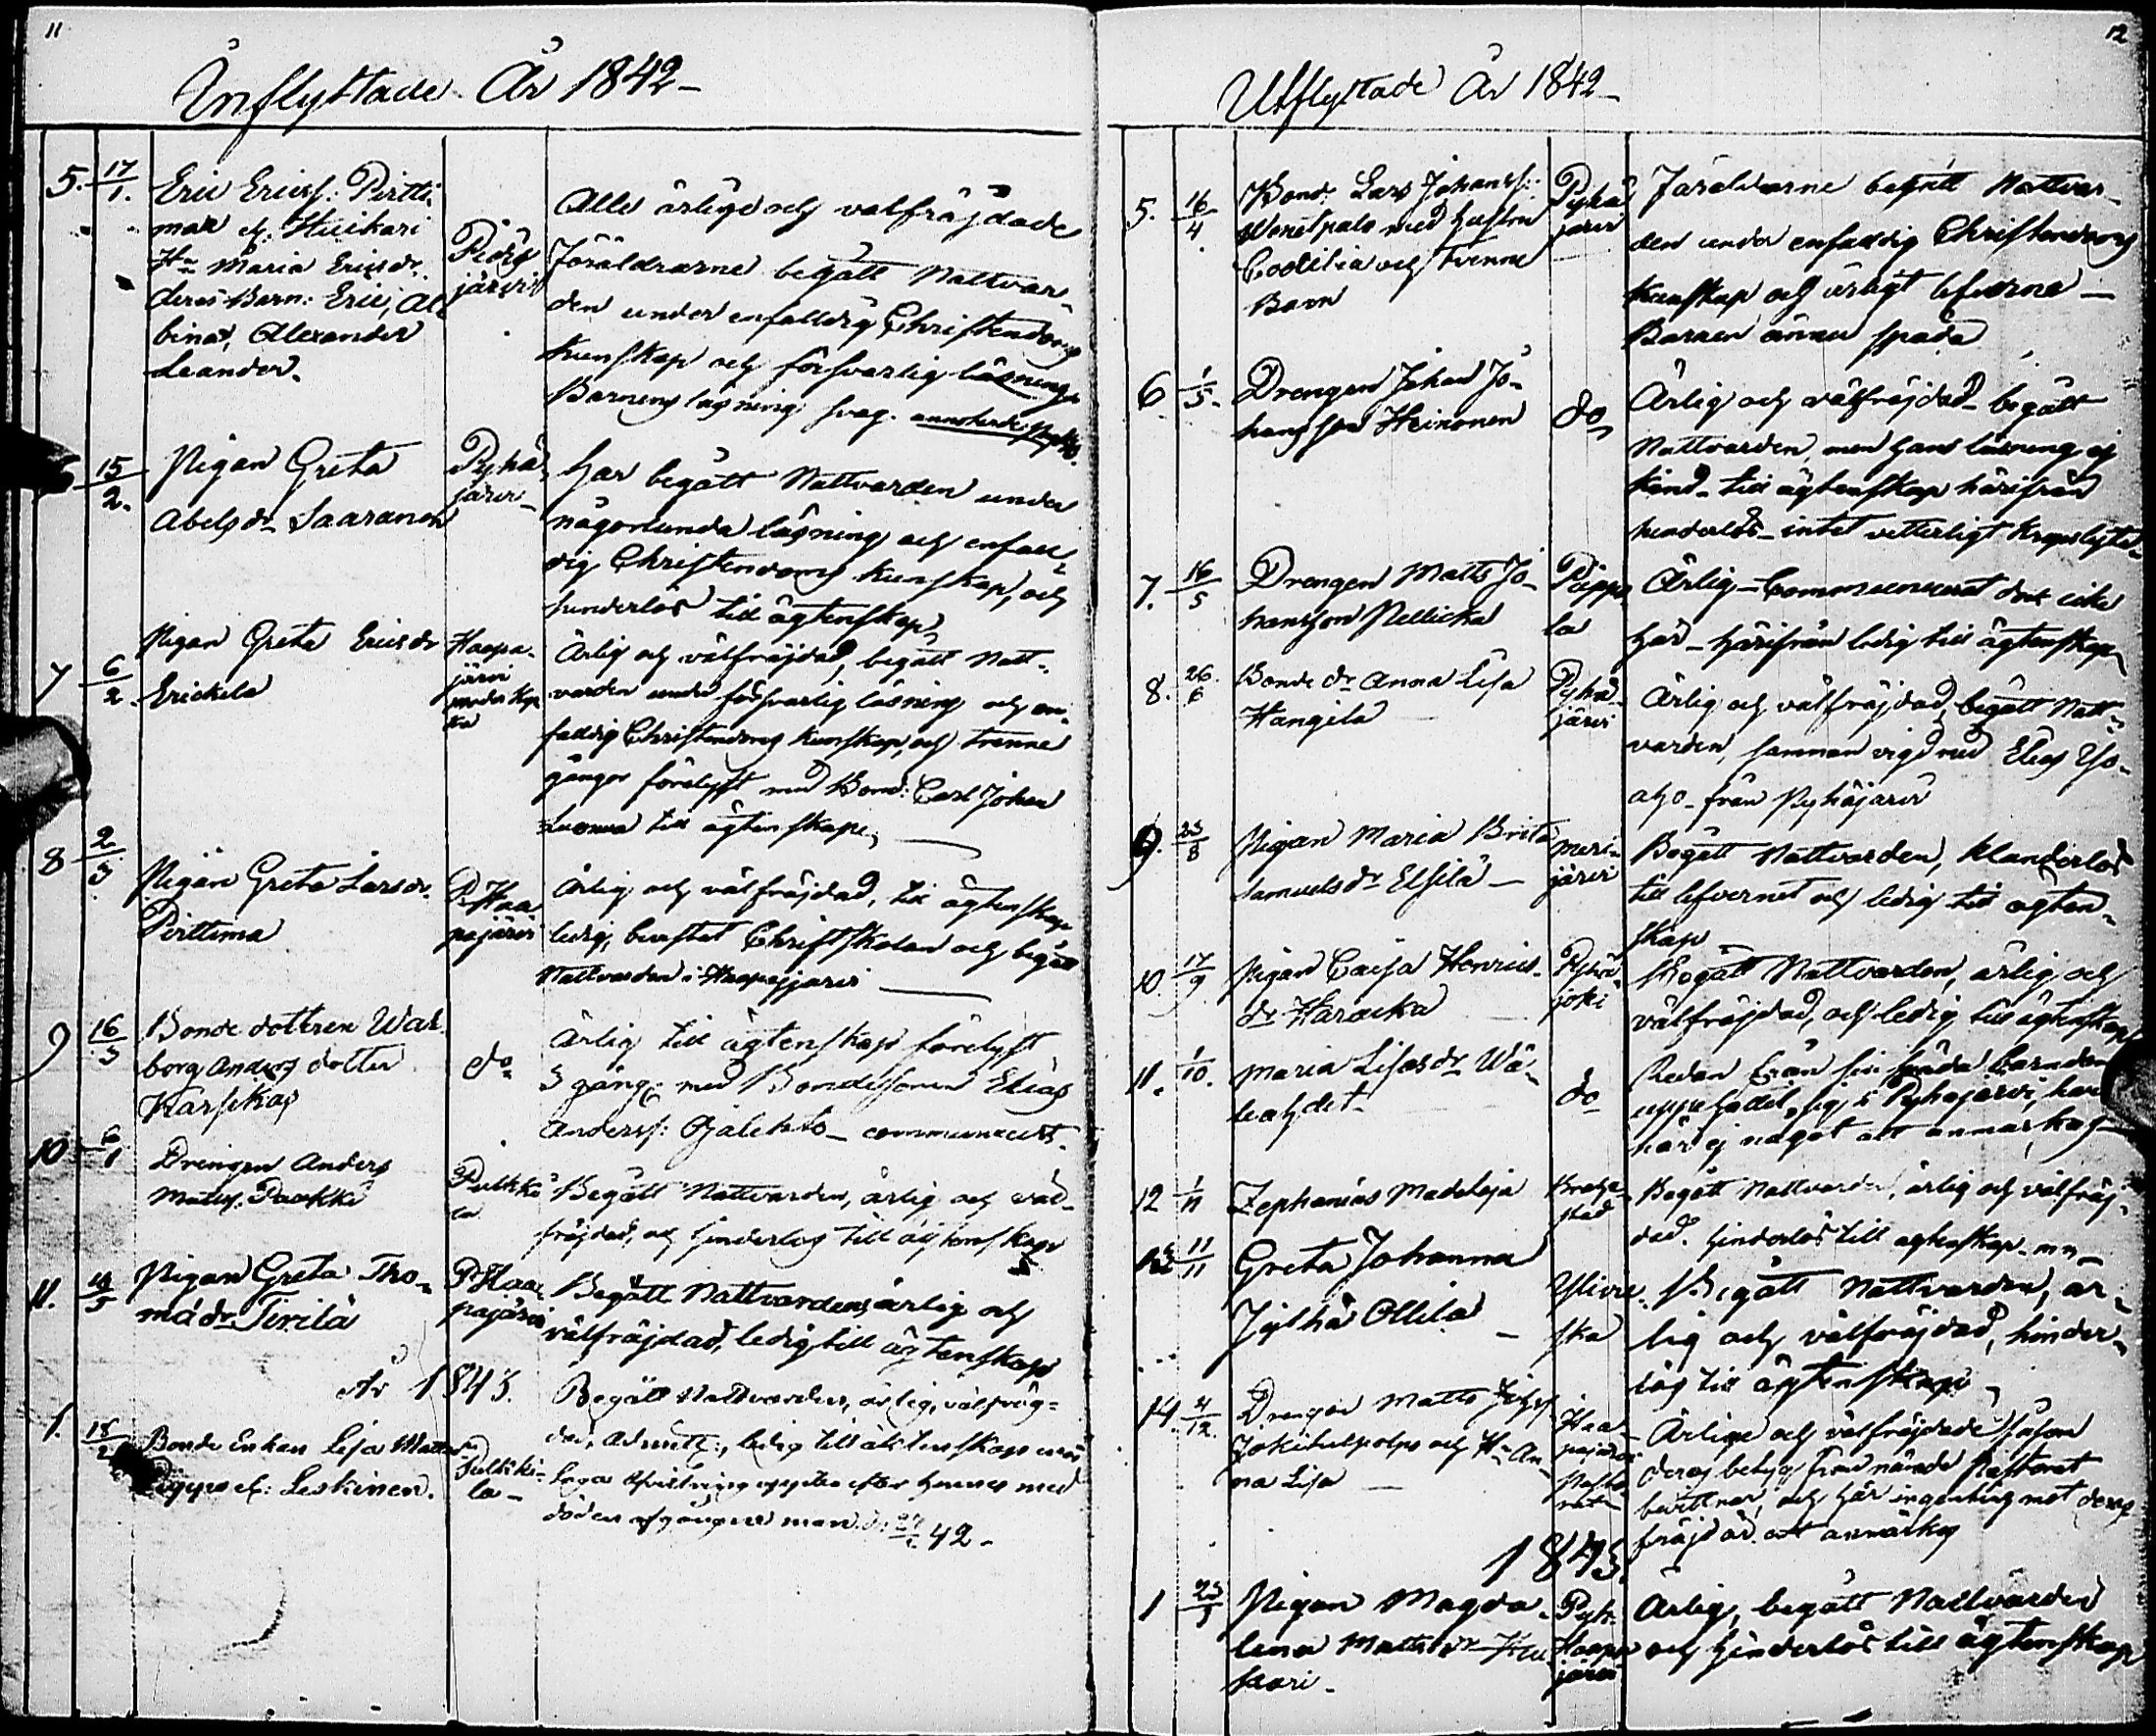 11
Inflyttade År 1842 –
5. 17/1. Eric Ericss: Pirtti
mak el. Huikari
Hu Maria Ericsdr.
deras Barn: Eric, Al
bina, Alexander
Leander.
Pidis
järvi
Alla ärlige och välfräjdade
Föräldrarne begått Nattvar-
den under enfaldig Christendoms
kunskap och försvarlig läsning
Barnens läsning svag.
15/2. Pigan Greta
Abelsdr Saaranen
Pyhä
järvi
har begått Nattvarden under
någorlunda läsning och enfal-
dig Christendoms kunskap, och
hinderlös till ägtenskap
7 6/2 Pigan Greta Ericsdr
Erickela
Haapa-
järvi
Ärlig och välfräjdad, begått Natt-
varden under försvarlig läsning och en-
faldig Christendoms kunskap, och trenne
gånger förelyst med Bond: Carl Johan
till ägtenskap.
8 2/3 Pigan Greta Larsdr.
Pirttima
P. Haa
pajärvi
Ärlig och välfräjdad, till ägtenskap
ledig, bevistat Christskolan och begått
Nattvarden i Haapajärvi
9 16/3 Bonde dottren Wal
borg Anders dotter
Karsikas
do
Ärlig till ägtenskap förelyst
3 gång: med Bondesonen Elias
Anderss: Ojalehto – communicerat.
10 Drengen Anders
Matss: Paakki
Pulkki
la
Begått Nattvarden, ärlig och väl-
fräjdad, och hinderlös till ägtenskap
11. Pigan Greta Tho-
mædr Tirilä
P. Haa
pajärvi
Begått Nattvarden, ärlig och
välfräjdad, ledig till ägtenskap
År 1843.
1. 18/2 Bonde Enkan Lisa Mattsdr
el: Leskinen.
Pulkki-
la –
Begått Nattvarden, ärlig, välfräg-
dad, ledig till äktenskap
laga afvittring efter hennes med
döden afgångne man 42 –
12
Utflyttade År 1842 –
5. 16/4 Bond. Lars Johanss:
Wenetpalo med hustru
och tvenne
Barn
Pyhä
järvi
Föräldrarne begått Nattvar-
den under enfaldig Christendoms
kunskap och ärligt lefverne –
Barnen ännu späda
6 1/5. Drengen Johan Jo-
hansson Heinonen
do
Ärlig och välfräjdad – begått
Nattvarden, men hans läsning ej
känd – till ägtenskap härifrån
hinderlös – intet vetterligt
7. 16/5 Drengen Matts Jo-
hansson Pellicka
Pippo
la
Ärlig – Communicerat dock icke
här – härifrån ledig till ägtenskap
8. 26/6 Bonde dr Anna Lisa
Hangila
Pyhä-
järvi
Ärlig och välfräjdad, begått Natt-
varden, samman vigd med Elias Yso-
aho – från Pyhäjärvi
9. 23/8 Pigan Maria Brita
Samuelsdr Elsilä –
Meri-
järvi
Begått Nattvarden, klanderlös
till lefvernet och ledig till ägten-
skap
10 17/9 Pigan Caisa Henrics-
dr Haracka
Pyhä
joki
Begått Nattvarden, ärlig och
välfräjdad, och ledig till ägtenskap
11. 1/10. Maria Lisasdr Wä-
do
Redan från sin späda barndom
uppehållit sig i Pyhäjärvi, har
här ej något att anmärkas
12 1/11 Zephanias Madeleja
Brahe
stad
Begått Nattvarden, ärlig och välfräj-
dad. hinderlös till ägtenskap.
13 11/11 Greta Johanna
Jylhä Ollila –
Ylivie
ska
Begått Nattvarden, är-
lig och välfräjdad, hinder-
lös till ägtenskap
14 4/12. Drengen Matts Josef
och Hu An-
na Lisa –
Haa-
pajärvi
Pasto
rat
Ärlige och välfräjdade såsom
deras betyg från nämde Pastorat
bevittnar, och här ingenting mot deras
fräjd är att anmärkas
1843.
1 23/1 Pigan Magda-
lena Mattsdr
Pyh.
Haapa
järvi
Ärlig, begått Nattvarden
och hinderlös till ägtenskap